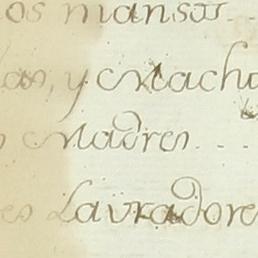 os mansos...
las, y Macho
Madres...
es Lavradore